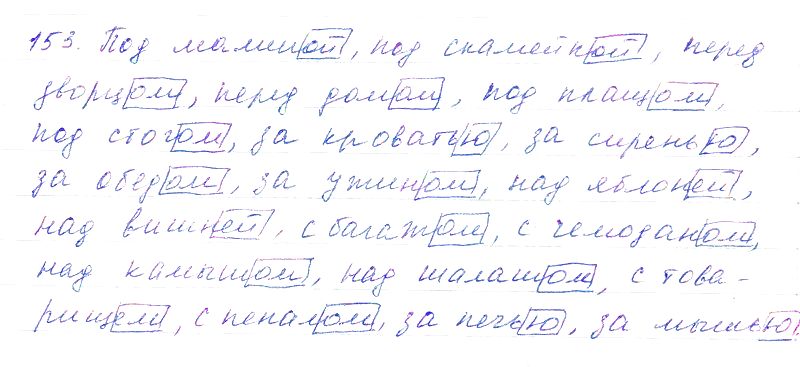 153. Под малиной, под скамейкой, перед
дворцом, перед домом, под плащом,
под стогом, за кроватью, за сиренью,
за обедом, за ужином, над яблоней,
над вишней, с багажом, с чемоданом,
над камышом, над шалашом, с това-
рищем, с пеналом, за печью, за мышью